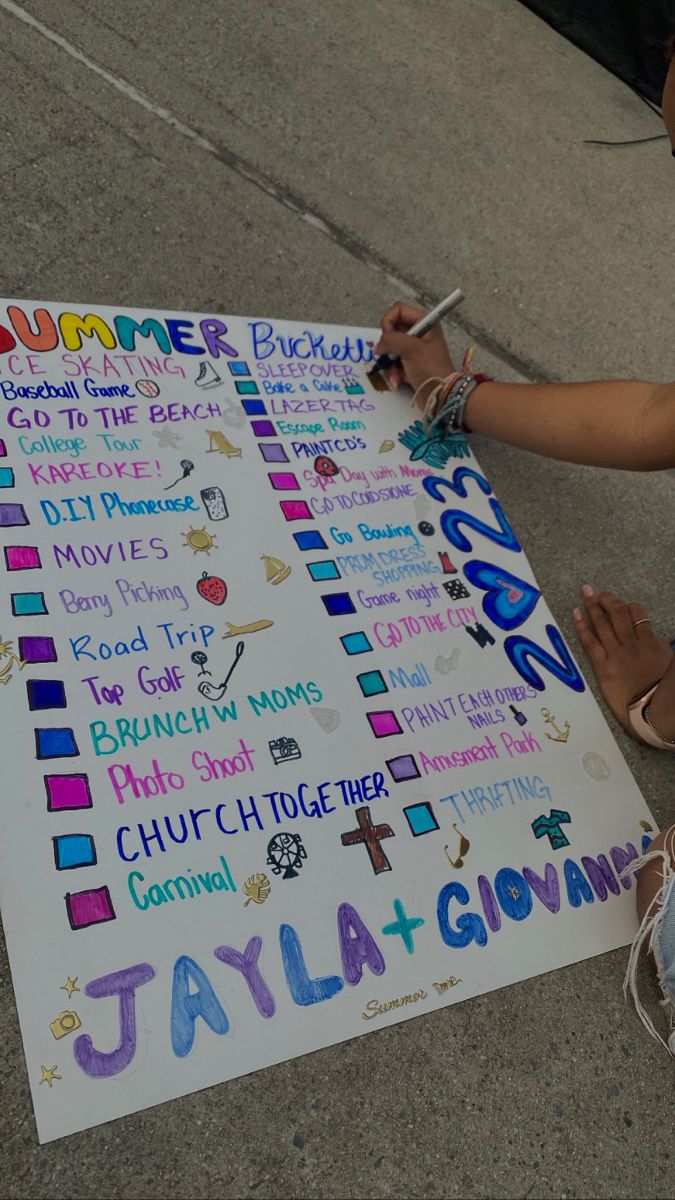 SUMMER Bucketli
ICE SKATING
Baseball Game
GO TO THE BEACH
College Tour
KAREOKE!
D.I.Y Phonecase
MOVIES
Berry Picking
Road Trip
Top Golf
BRUNCH W MOMS
Photo Shoot
CHURCH TOGETHER
Carnival
SLEEPOVER
Bake a Cake
LAZER TAG
Escape Room
PAINT CD'S
Spa Day with Moms
GO TO COLDSTONE
Go Bowling
PROM DRESS
SHOPPING
Game night
GO TO THE CITY
Mall
PAINT EACH OTHERS
NAILS
Amusment Park
THRIFTING
2023
JAYLA + GIOVANN
Summer Time